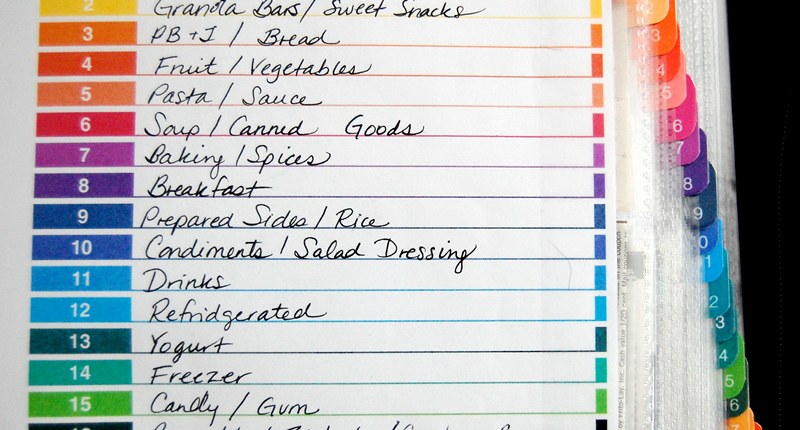 2 Granola Bars / Sweet Snacks
3 PB+J / Bread
4 Fruit / Vegetables
5 Pasta / Sauce
6 Soup / Canned Goods
7 Baking / Spices
8 Breakfast
9 Prepared Sides / Rice
10 Condiments / Salad Dressing
11 Drinks
12 Refridgerated
13 Yogurt
14 Freezer
15 Candy / Gum
2
3
4
5
6
7
8
9
0
1
2
3
4
5
6
7